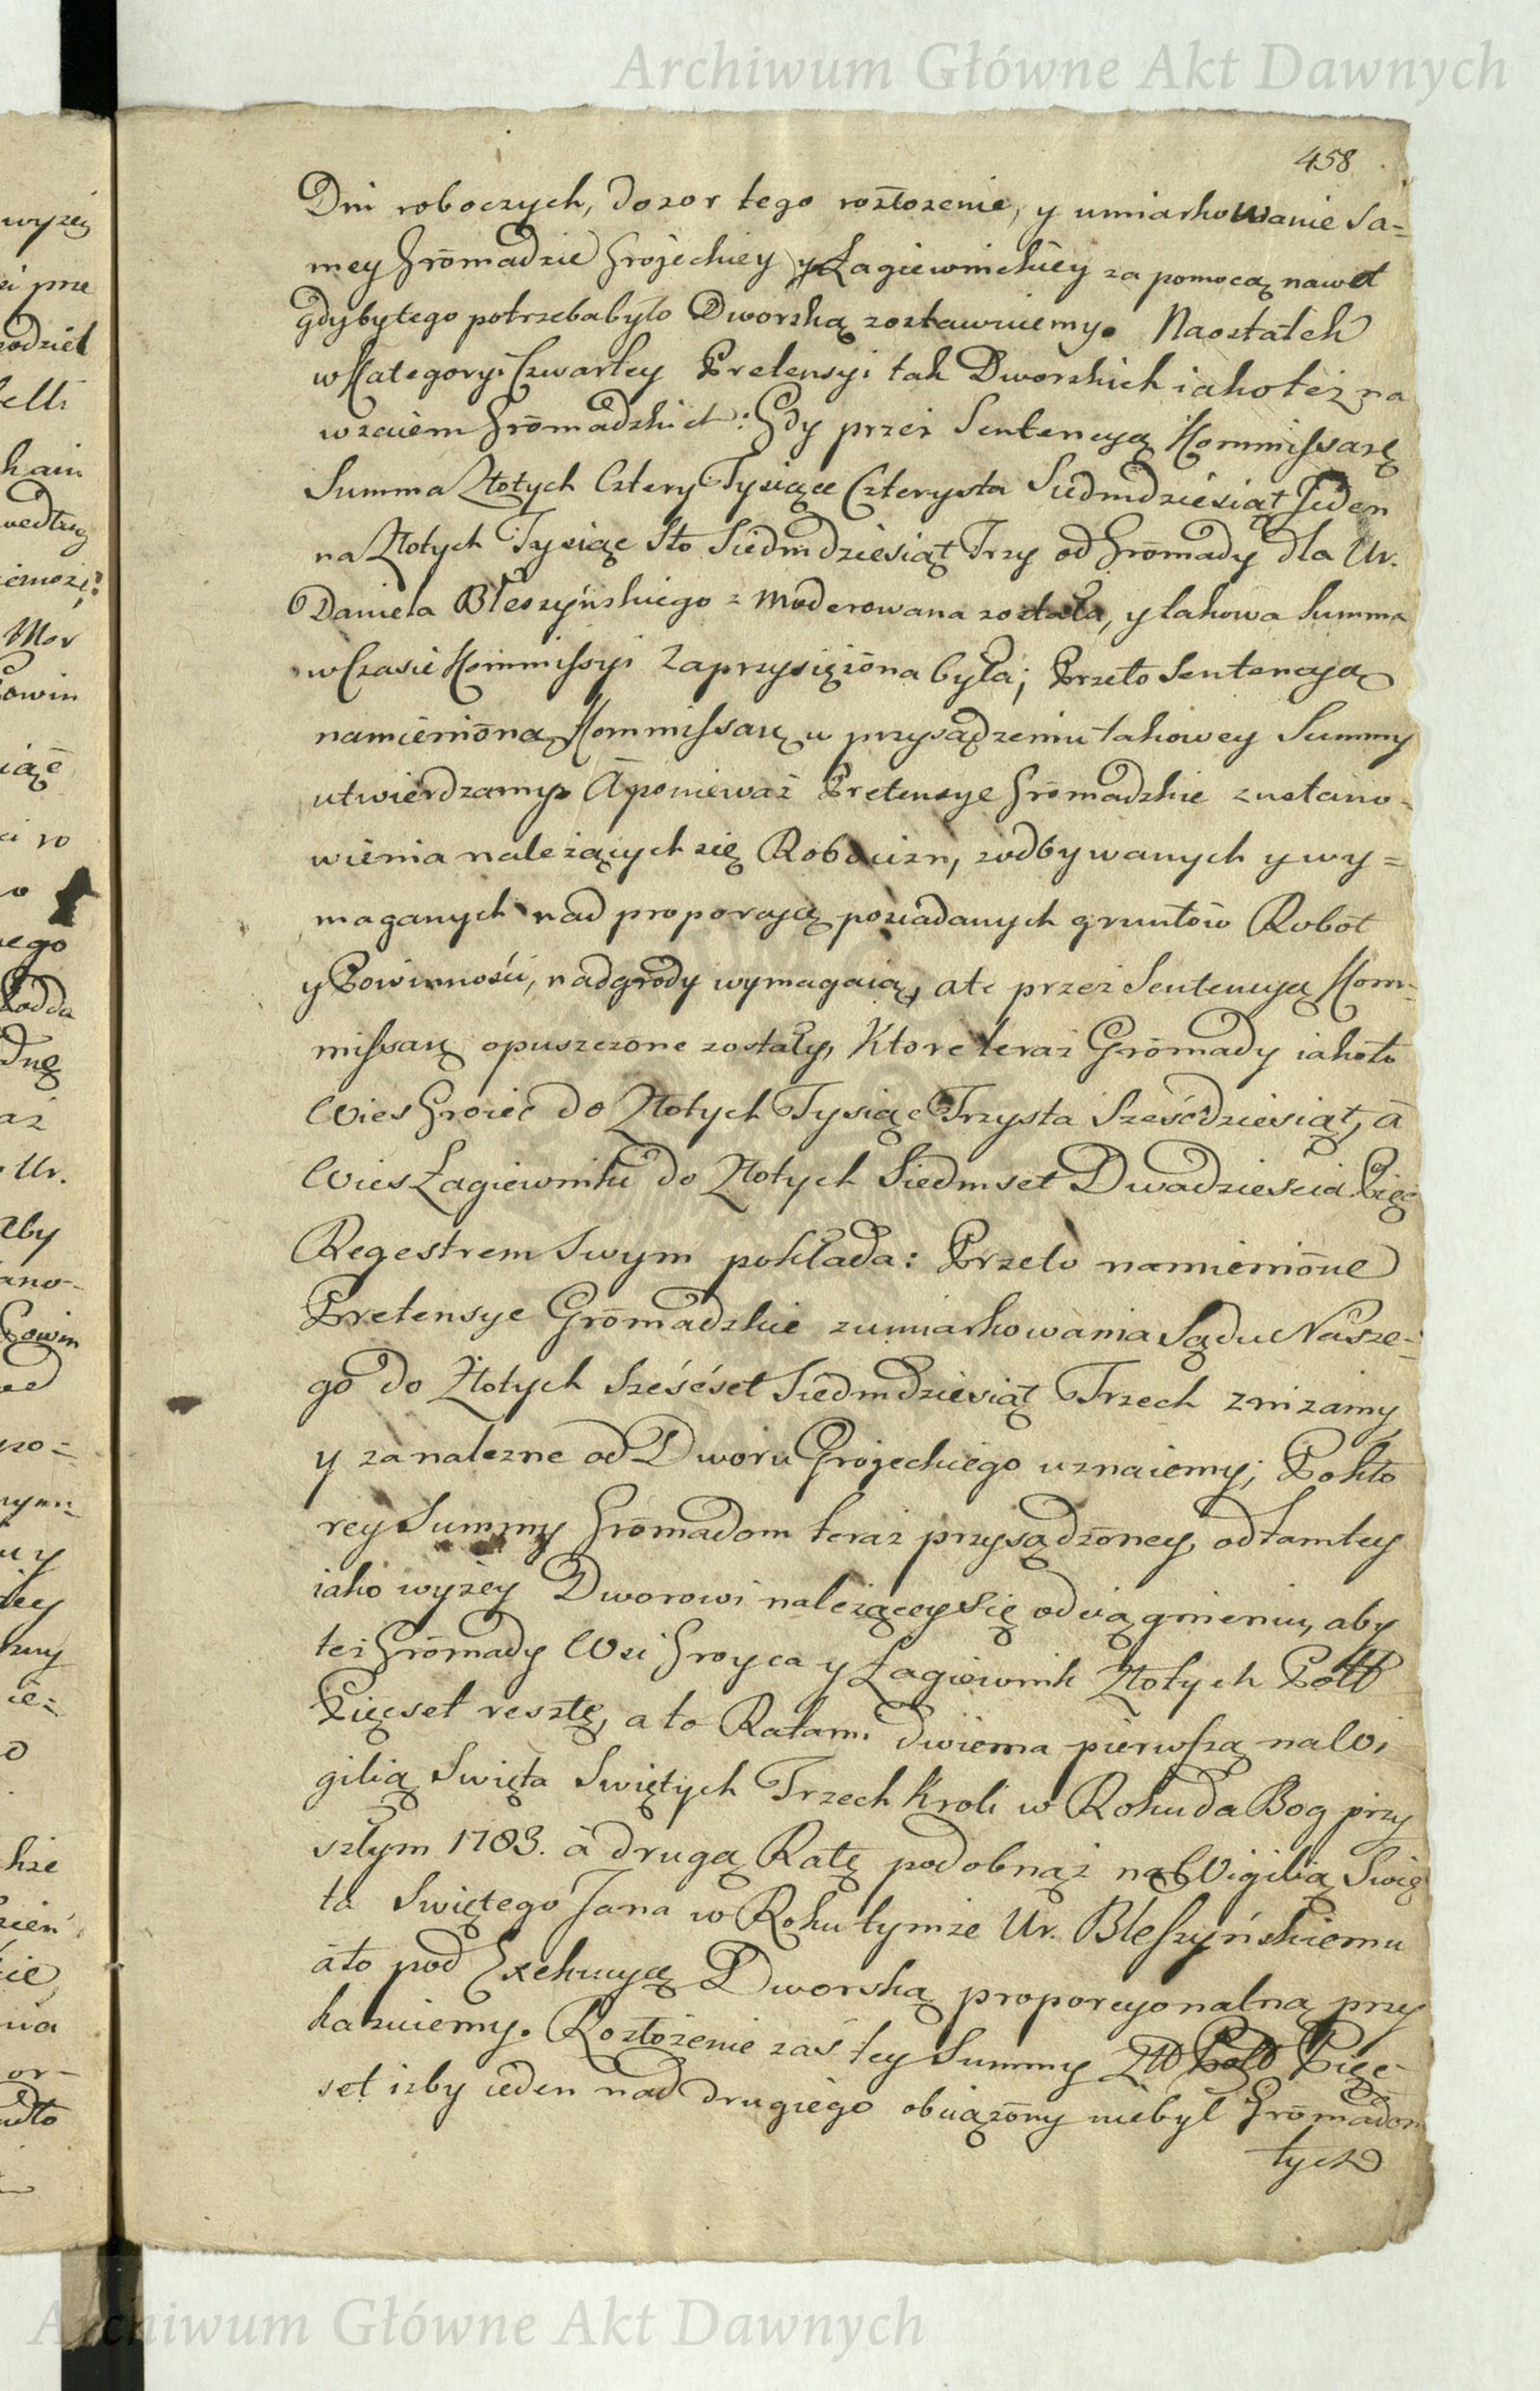 Archiwum Główne Akt Dawnych
458
Dni roboczych, dozor tego rozłozenie, y umiarkowanie sa=
mey Gromadzie Grojeckiey y Łagiewnickiey za pomocą nawet
gdyby tego potrzeba było Dworską zostawuiemy. Naostatek
w Kategoryi Czwartey Pretensyi tak Dworskich iako też na
wzaiem Gromadzkich: Gdy przez Sentencyą Kommissarzą
Summa Złotych Cztery Tysiące Czterysta Siedmdziesiąt Jeden
na Złotych Tysiąc Sto Siedmdziesiąt Trzy od Gromady dla Ur.
Daniela Błeszyńskiego z moderowana została, y takowa Summa
w Czasie Kommissyi zaprzysiężona była; Przeto Sentencyą
namienioną Kommissarzą w przysądzeniu takowey Summy
utwierdzamy. A ponieważ Pretensye Gromadzkie z ustano=
wienia należących się Robocizn, z odbywanych y wy=
maganych nad proporcyą posiadanych gruntow Robot
y Powinności, nadgrody wymagaią, ale przez Sentencyą Kom=
missarzą opuszczone zostały, Ktore teraz Gromady iako to
Wies Groiec do Złotych Tysiąc Trzysta Sześćdziesiąt, a
Wies Łagiewniki do Złotych Siedmset Dwadzieścia Pięć
Regestrem swym pokłada: Przeto namienione
Pretensye Gromadzkie z umiarkowania Sądu Nasze=
go do Złotych Sześćset Siedmdziesiąt Trzech zniżamy
y za nalezne od Dworu Grojeckiego uznaiemy; Po kto
rey Summy Gromadom teraz przysądzoney, od tamtey
iako wyżey Dworowi należącey się odciągnieniu, aby
też Gromady Wsi Groyca y Łagiewnik Złotych Poll
Pięcset resztę, a to Ratami dwiema pierwszą na Wi
gilią Swięta Swiętych Trzech Kroli w Roku da Bog przy
szłym 1783. a drugą Ratę podobnąż na Wigilią Swię
ta Swiętego Jana w Roku tymże Ur. Bleszyńskiemu
a to pod Exekucyą Dworską proporcyonalną przy
kazuiemy. Rozłożenie zaś tey Summy Złł Poll Pięć=
set izby ieden nad drugiego obciążony niebył Gromadom
tych
Archiwum Główne Akt Dawnych